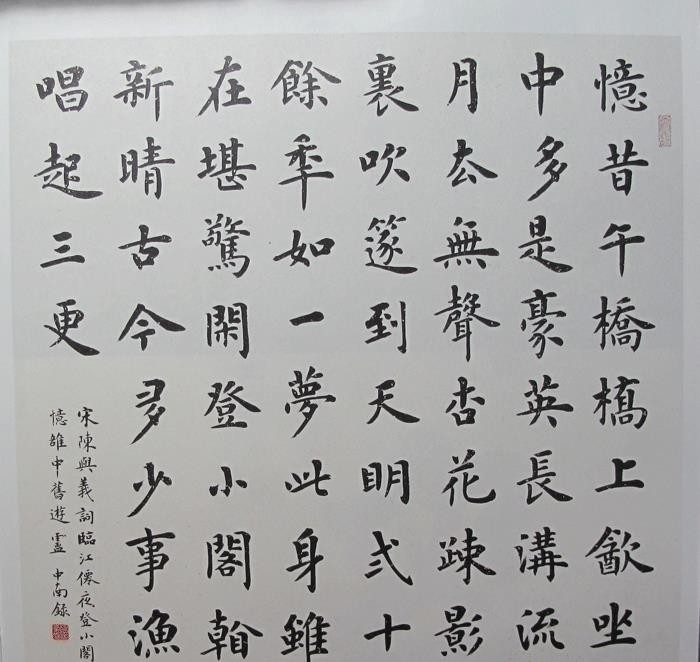 憶昔午橋橋上㱃坐
中多是豪英長溝流
月厺無聲杏花疎影
裏吹篴到天明弍十
餘秊如一夢此身雖
在堪驚閑登小閣
新晴古今多少事漁
唱起三更
宋陳與義詞臨江僊夜登小閣
憶雒中舊遊 靈 中南錄